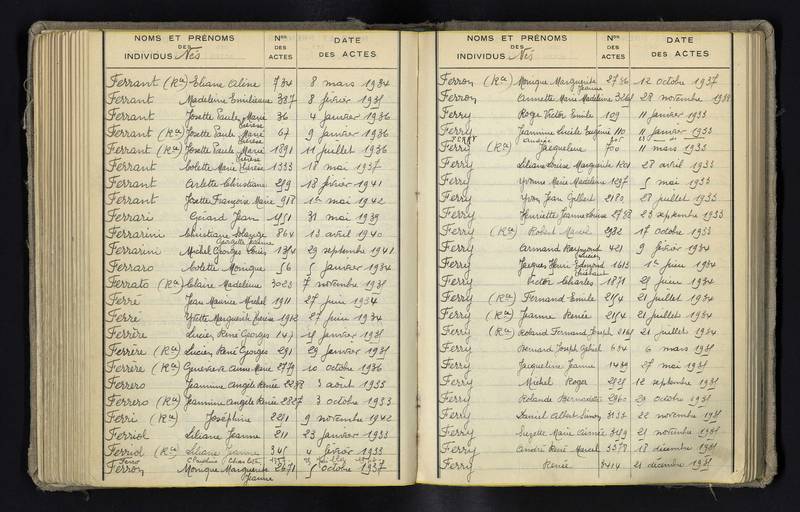 NOMS ET PRÉNOMS
DES
INDIVIDUS Nés
Nos
DES
ACTES
DATE
DES ACTES
Ferrant (Ra) Eliane Aline 734 8 mars 1934
Ferrant Madeleine Emilienne 387 8 février 1935
Ferrant Josette Paule Marie 36 4 janvier 1936
Thérèse
Ferrant (Ra) Josette Paule Marie 67 9 janvier 1936
Thérèse
Ferrant (Ra) Josette Paule Marie 1891 11 juillet 1936
Thérèse
Ferrant Colette Marie Thérèse 1333 18 mai 1937
Ferrant Arlette Christiane 18 février 1941
Ferrant Josette Françoise Marie 918 1er mai 1942
Ferrari Gérard Jean 31 mai 1939
Ferrarini Christiane Solange 864 13 avril 1940
Georgette Jeanne
Ferrarini Michel Georges 29 septembre 1941
Ferraro Colette Monique 56 5 janvier 1934
Ferrato (Ra) Claire Madeleine 3023 7 novembre 1935
Ferré Jean Maurice Michel 1911 27 juin 1934
Ferré Yvette Marguerite 1912 27 juin 1934
Ferrère Lucien René Georges 147 janvier 1935
Ferrère (Ra) Lucien René Georges 291 29 janvier 1935
Ferrère (Ra) Geneviève Anne Marie 2779 10 octobre 1936
Ferrero Jeannine Angèle Renée 3 août 1933
Ferrero (Ra) Jeannine Angèle Renée 2827 3 octobre 1933
Ferri (Ra) Joséphine 2221 9 novembre 1942
Ferriol Liliane Jeanne 211 23 janvier 1933
Ferriol (Ra) Liliane Jeanne 341 4 février 1933
Claudine Charlotte
Ferron Monique Marguerite 2671 5 octobre 1937
Jeanne
NOMS ET PRÉNOMS
DES
INDIVIDUS Nés
Nos
DES
ACTES
DATE
DES ACTES
Ferron (Ra) Monique Marguerite 2736 12 octobre 1937
Jeanne
Ferron Annette Marie Madeleine 28 novembre 1938
Ferry Roger Victor Emile 109 11 janvier 1933
Ferry Jeannine Lucile Eugénie 110 11 janvier 1933
FERRY
Ferry (Ra) Jacqueline 700 11 mars 1933
Ferry Liliane Louise Marguerite 28 avril 1933
Ferry Yvonne Marie Madeleine 1297 5 mai 1933
Ferry Yvon Jean Gilbert 2180 28 juillet 1933
Ferry Henriette Jeanne Louise 2788 23 septembre 1933
Ferry (Ra) Robert Marcel 2982 17 octobre 1933
Ferry Armand Raymond 421 9 février 1934
Lucien
Ferry Jacques Henri Edmond 1613 1er juin 1934
Ferry Victor Charles 1871 23 juin 1934
Ferry (Ra) Fernand Emile 2154 21 juillet 1934
Ferry (Ra) Jeanne Renée 2154 21 juillet 1934
Ferry (Ra) Roland Fernand Joseph 21 juillet 1934
Ferry Bernard Joseph Gabriel 634 6 mars 1935
Ferry Jacqueline Jeanne 1439 27 mai 1935
Ferry Michel Roger 12 septembre 1935
Ferry Rolande Bernadette 2960 29 octobre 1935
Ferry Daniel Albert Simon 3133 22 novembre 1935
Ferry Suzette Marie Aimée 21 novembre 1935
Ferry André René Marcel 3379 18 décembre 1935
Ferry Renée 3414 21 décembre 1935